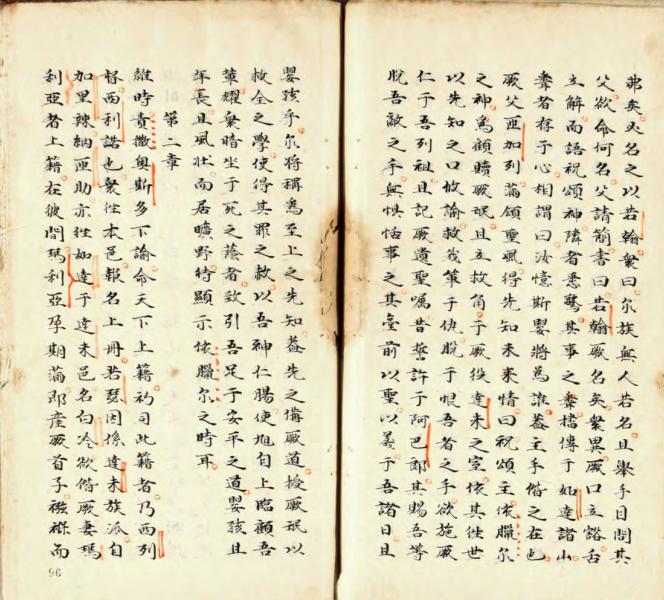 弗矣乃名之以若翰衆曰尔族無人若名且舉手目問其
父欲命何名父請簡書曰若翰厥名矣衆異厥口立谿舌
立解而語祝頌神隣者悉驚其事之傳于如達諸山
者存于心相謂曰汝憶斯嬰將為誰葢主手偕之在也
厥父匝加列滿領聖風得先知未来情曰祝頌主依臘尔
之神為顧贖厥氓且立救角于厥役達未之室依其徃世
以先知之口攸諭救我等于仇脫于恨吾者之手欲施厥
仁于吾列祖且記厥遺聖嘱昔誓許于阿巴郎其賜吾等
脫吾敵之手無惧恬事之其臺前以聖以義于吾諸日且
嬰孩乎尔将稱為至上之先知葢先之備厥道授厥氓以
救全之學使得其罪之赦以吾神仁腸使旭自上臨顧吾
輩耀冥暗坐于死之蔭者致引吾足于安平之道嬰孩且
年長且風壮而居曠野待顯示依臘尔之時耳
第二章
維時責撒奥斯多下諭命天下上籍初司此籍者乃西列
督西利諾也衆徃本邑報名上冊若瑟因係達未族派自
加里辣納匝助亦徃如達于達未邑名白冷欲偕厥妻瑪
利亞者上籍在彼間瑪利亞孕期滿即産厥首子襁褓而
96